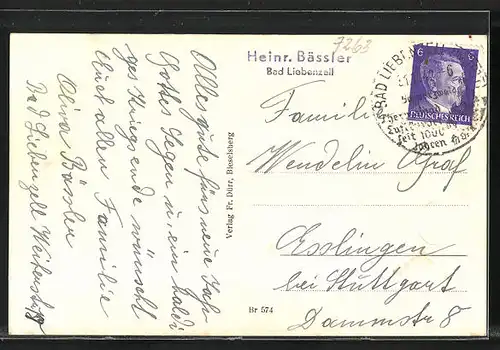 Alles gute fürs neue Jahr
Gottes Segen u. ein baldi
ges Kriegsende wünscht
Euch allen Familie
Bässler
Bad Liebenzell
Verlag Fr. Dürr, Bieselsberg
Br 574
7263
Heinr. Bässler
Bad Liebenzell
Familie
Wendelin Graf
Esslingen
bei Stuttgart
Dammstr 8
6 6
DEUTSCHES REICH
BAD LIEBENZELL
6
seit 1000
Jahren